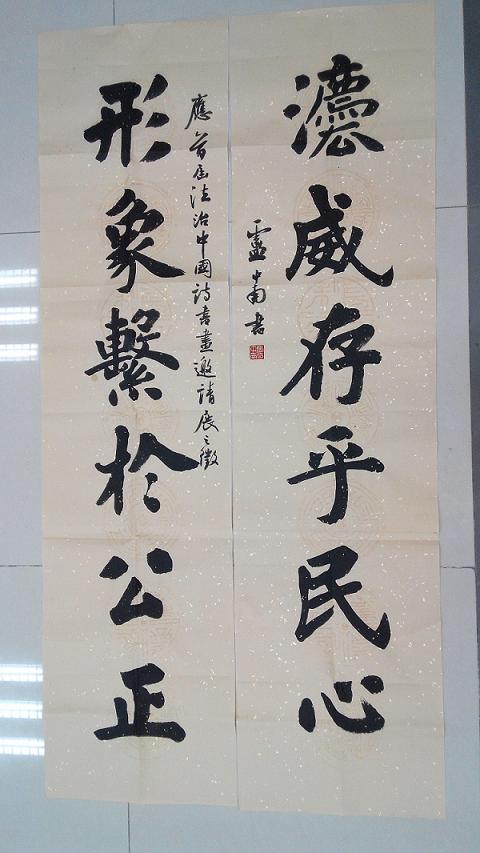 灋威存乎民心
盧中南書
應首屆法治中國詩書畫邀請展之徵
形象繫於公正